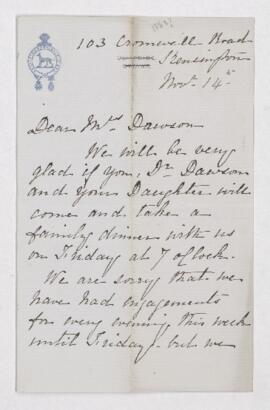 103 Cromwell Road
Kensington
Novr. 14th
Dear Mrs Dawson
We will be very
glad if you, Dr. Dawson
and your Daughter will
come and take a
family dinner with us
on Friday at 7 oClock.
We are sorry that we
have had engagements
for every evening this week
until Friday - but we